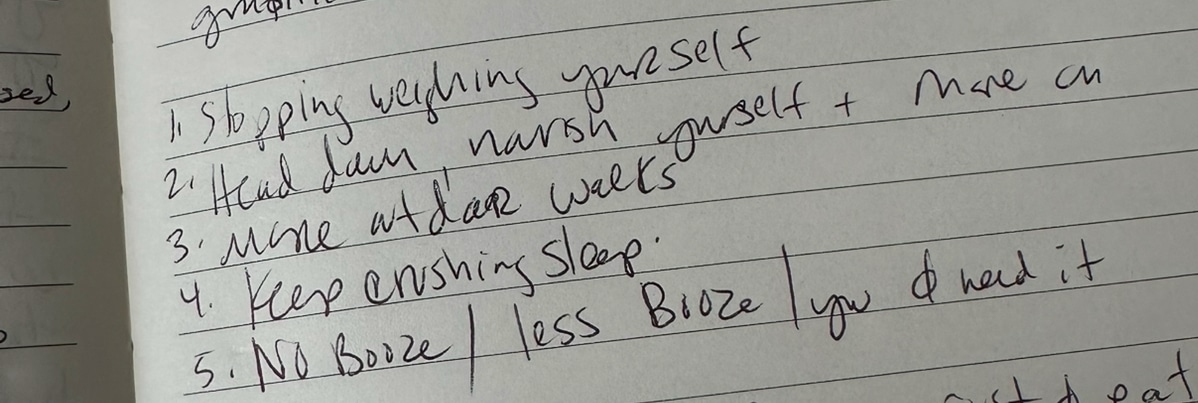 1. Stopping weighing yourself
2. Head down, narish yourself + move on
3. More outdoor walks
4. Keep crushing sleep.
5. No Booze / less Booze / you need it
eat